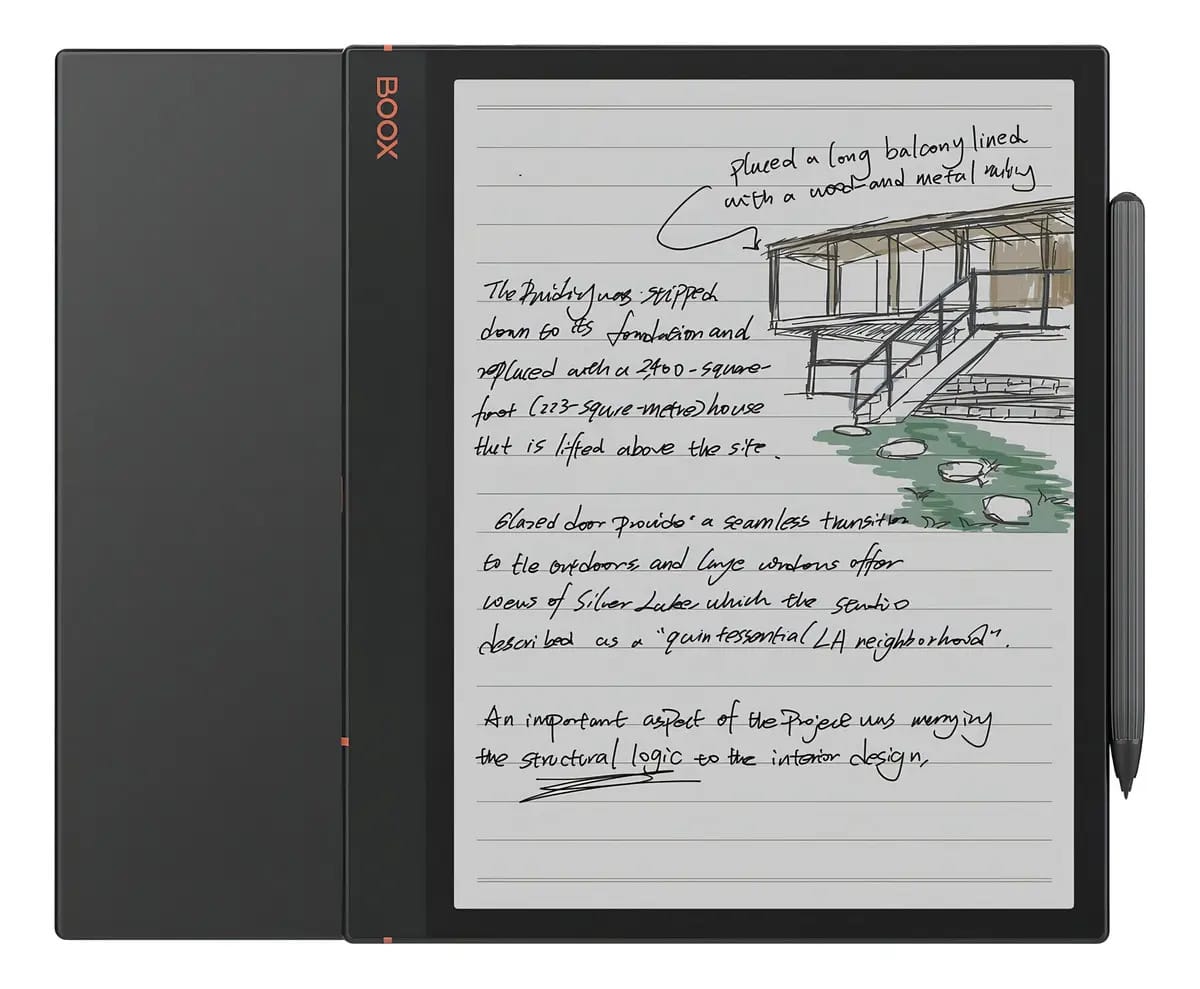 BOOX
placed a long balcony lined
with a wood and metal railing
The Building was stripped
down to its foundation and
replaced with a 2,400-square-
foot (223-squre-metre) house
that is lifted above the site.
Glazed door provide a seamless transition
to the outdoors, and large windows offer
views of Silver Lake, which the studio
described as a "quintessential LA neighborhood".
An important aspect of the Project was marrying
the structural logic to the interior design,